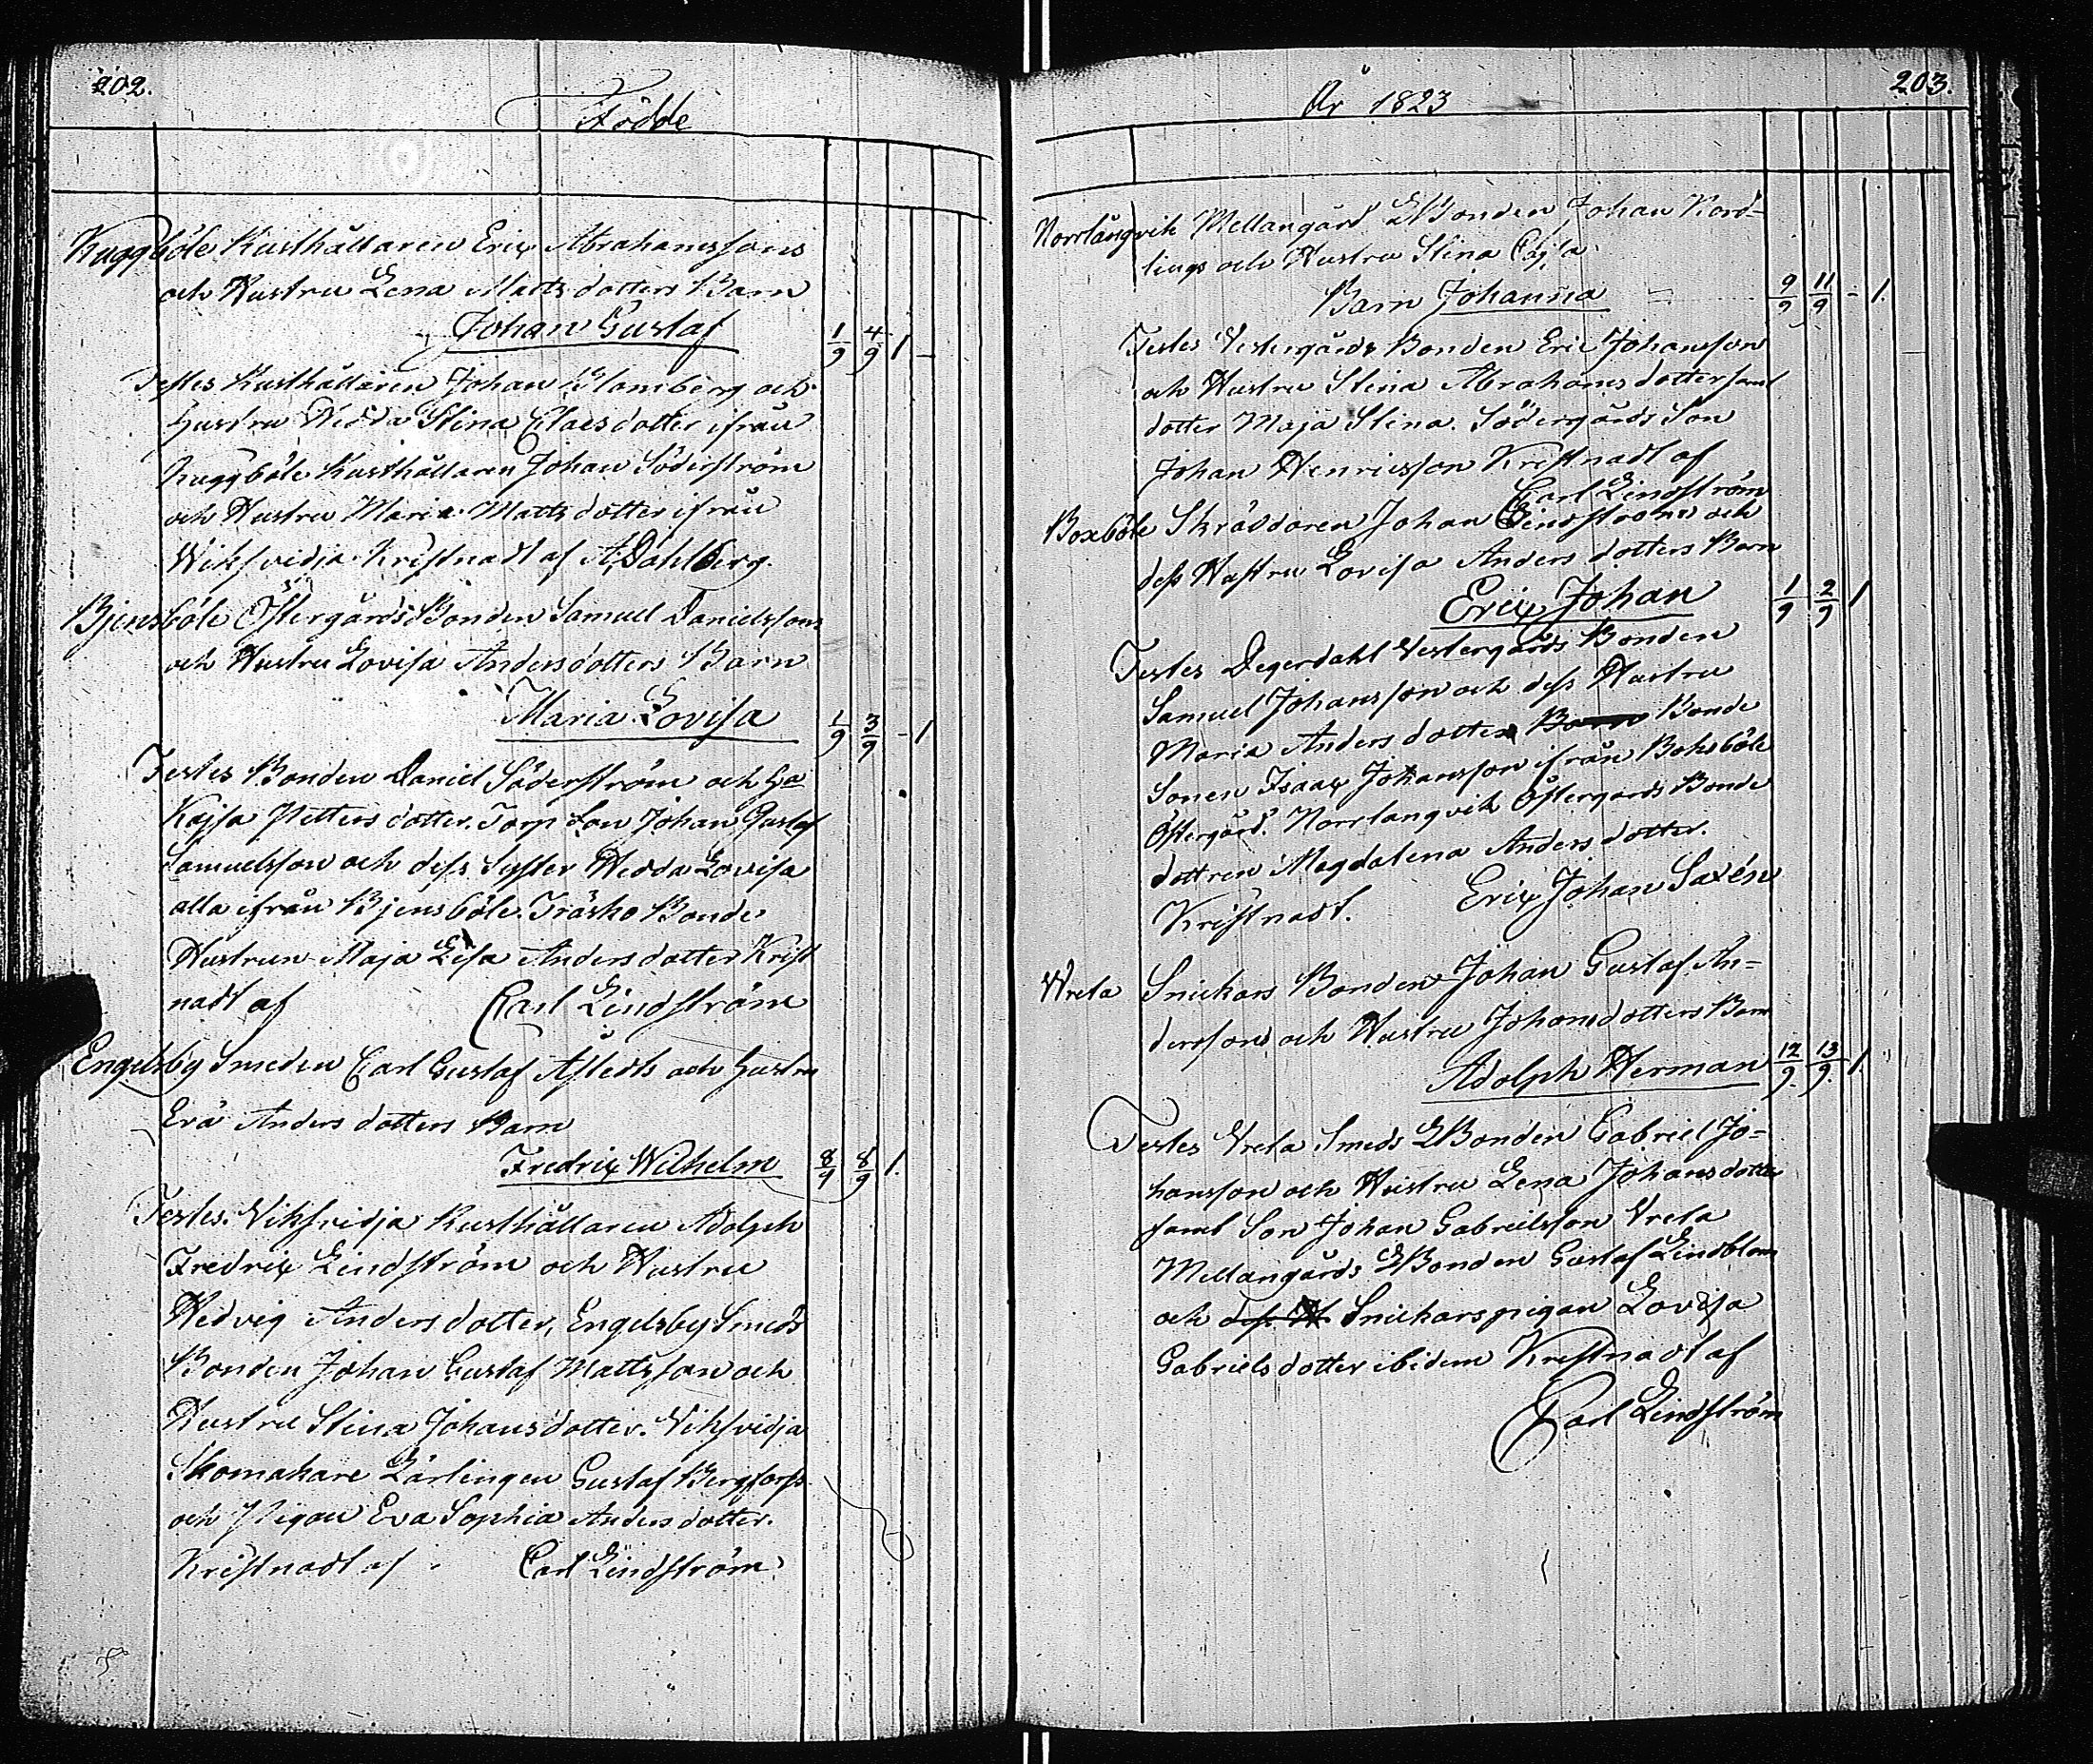 202.
Födde
Kuggböle Rusthållaren Eric Abrahamssons
och Hustru Lena Matts dotters Barn
Johan Gustaf 1/9 4/9 1 –
Testes Rusthållaren Johan Blomberg och
hustru Hedda Stina Claesdotter ifrån
Kuggböle Rusthållaren Johan Söderström
och Hustru Maria Matts dotter ifrån
Wiksvidja Kristnadt af A, Dahlberg.
Bjensböle Östergårds Bonden Samuel Danielssons
och Hustru Lovisa Andersdotters Barn
Maria Lovisa 1/9 3/9 – 1
Testes Bonden Daniel Söderström och hu
Kajsa Petters dotter. Torp Son Johan Gustaf
Samuelsson och dess Syster Hedda Lovisa
alla ifrån Bjensböle. Träsko Bonde
Hustrun Maja Lisa Anders dotter Krist
nadt af Carl Lindström
Engelsby Smeden Carl Gustaf Åstedts och hustru
Eva Anders dotters Barn
Fredric Wilhelm 8/9 8/9 1.
Testes. Viksvidja Rusthållaren Adolph
Fredric Lindström och Hustru
Hedvig Anders dotter, Engelsby Smeds
Bonden Johan Gustaf Mattsson och
Hustru Stina Johans dotter. Viksvidja
Skomakare Lärlingen Gustaf Bergfors
och Pigan Eva Sophia Anders dotter.
Kristnadt af Carl Lindström
År 1823
203.
Norrlångvik Mellangård LBonden Johan Nord-
lings och Hustru Stina Cajsa
Barn Johanna 9/9 11/9 – 1.
Testes Vestergårds Bonden Eric Johansson
och Hustru Stina Abrahams dotter samt
dotter Maja Stina. Södergårds Son
Johan Henricsson Kristnadt af
Carl Lindström
Boxböle Skräddaren Johan Lindströms och
dess Hustru Lovisa Anders dotters Barn
Eric Johan 1/9 2/9 1
Testes Degerdahl Vestergårds Bonden
Samuel Johansson och dess Hustru
Maria Anders dotter Barn Bonde
Sonen Isaac Johansson ifrån Bohsböle
Östergård. Norrlangvik Östergårds Bonde
dottren Magdalena Anders dotter.
Kristnadt. Eric Johan Saxén
Wreta Snickars Bonden Johan Gustaf An-
derssons och Hustru Johansdotters Barn
Adolph Herman 12/9. 13/9. 1.
Testes Vreta Smeds LBonden Gabriel Jo-
hansson och Hustru Lena Johansdotter
samt Son Johan Gabrielsson Vreta
Mellangårds LBonden Gustaf Lindblom
och dess H Snickarspigan Lovisa
Gabriels dotter ibidem Kristnadt af
Carl Lindström